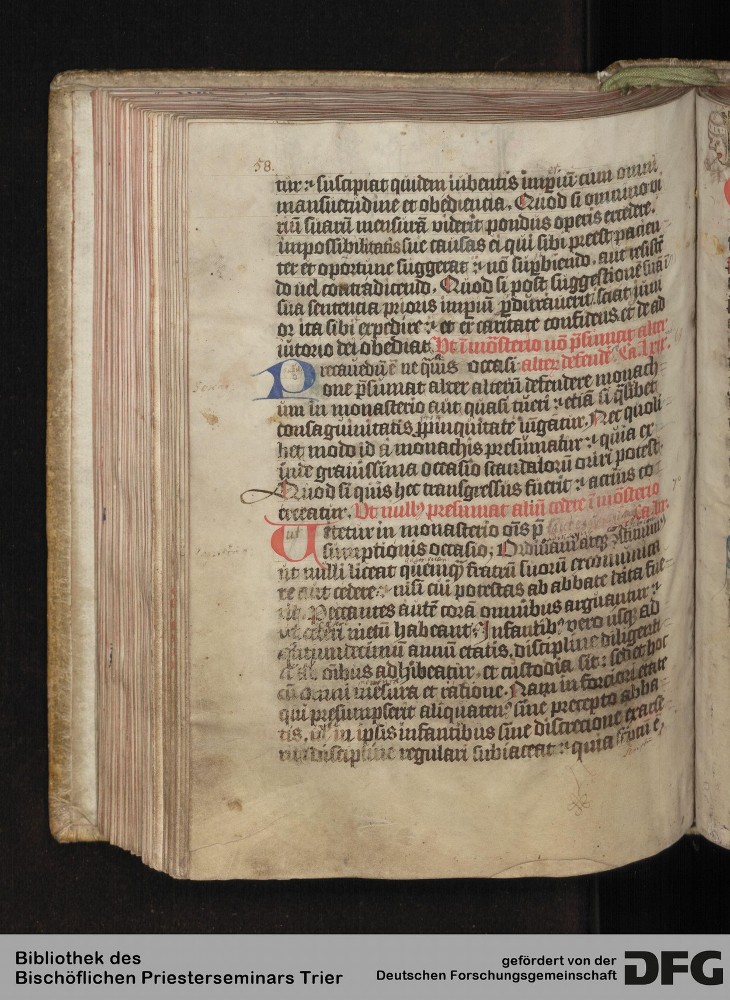 58.
tur : suscipiat quidem iubentis imp̅iu̅ cum omni
mansuetudine et obediencia. Quod si omnino vi
riu̅ suaru̅ mensura̅ viderit pondus operis excedere.
impossibilitatis sue causas ei qui sibi preest pacien
ter et oportune suggerat : no̅ sup̅biendo. aut resiste̅
do uel contradicendo. Quod si post suggestione̅ sua̅
sua sentencia prioris imp̅iu̅ p̅durauerit. sciat iuni
or ita sibi expedire : et ex caritate confidens. ex de ad
iutorio dei obediat. Vt i̅ mo̅sterio no̅ p̅sumat alter
Precauedu̅ e̅ ne q̅uis occasi alter defende̅ Ca. lxix.
one p̅sumat alter alteru̅ defendere monach
um in monasterio aut quasi tueri : etia̅ si q̅libet
consaguinitatis p̅pinquitate iu̅gatur. Nec quoli
bet modo id a monachis presumatur : quia ex
inde grauissima occasio scandaloru̅ oriri potest.
Quod si quis hec transgressus fuerit : acrius co
erceatur. Vt null9 presumat aliu̅ cedere i̅ mo̅sterio
Vitetur in monasterio o̅is p̅ Ca. lxx.
sumptionis occasio. Ordinam9 atq̅
ut nulli liceat quemq̅ fratru̅ suoru̅ excommunica
re aut cedere : nisi cui potestas ab abbate data fue
rit. Peccantes aute̅ cora̅ omnibus arguantur :
ut ceteri metu̅ habeant. Infantib9 vero usq̅ ad
quintumdecimu̅ annu̅ etatis. discipline diligenti
a ab o̅ibus adhibeatur. et custodia sit : sed et hoc
cu̅ omni me̅sura et ratione. Nam in forciori etate
qui presumpserit aliquaten9 sine precepto abba
tis. in ipsis infantibus sine discrecione exarse
rit discipline regulari subiaceat : quia
Bibliothek des
Bischöflichen Priesterseminars Trier
gefördert von der
Deutschen Forschungsgemeinschaft
DFG